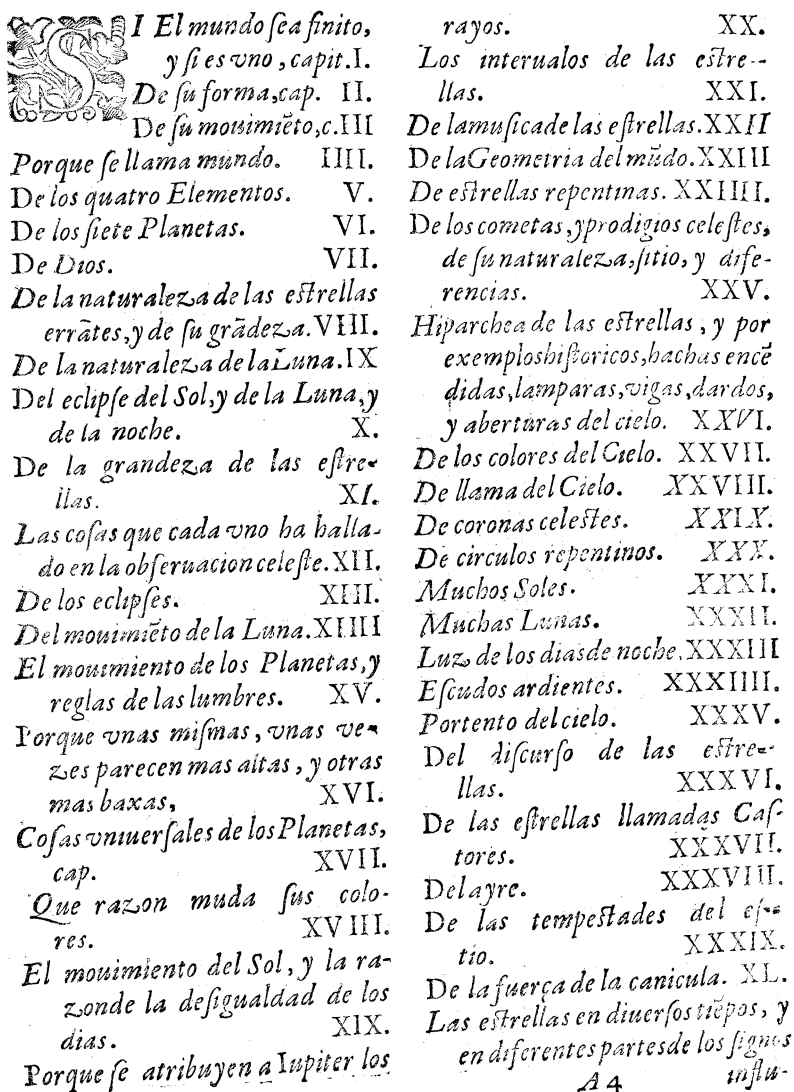 SI El mundo sea finito,
y si es vno, capit. I.
De su forma, cap. II.
De su mouimiẽto, c. III
Porque se llama mundo. IIII.
De los quatro Elementos. V.
De los siete Planetas. VI.
De Dios. VII.
De la naturaleza de las estrellas
errãtes, y de su grãdeza. VIII.
De la naturaleza de la Luna. IX
Del eclipse del Sol, y de la Luna, y
de la noche. X.
De la grandeza de las estre-
llas. XI.
Las cosas que cada vno ha halla-
do en la obseruacion celeste. XII.
De los eclipses. XIII.
Del mouimiẽto de la Luna. XIIII
El mouimiento de los Planetas, y
reglas de las lumbres. XV.
Porque vnas mismas, vnas ve-
zes parecen mas altas, y otras
mas baxas, XVI.
Cosas vniuersales de los Planetas,
cap. XVII.
Que razon muda sus colo-
res. XVIII.
El mouimiento del Sol, y la ra-
zon de la desigualdad de los
dias. XIX.
Porque se atribuyen a Iupiter los
rayos. XX.
Los interualos de las estre-
llas. XXI.
De la musica de las estrellas. XXII
De la Geometria del mũdo. XXIII
De estrellas repentinas. XXIIII.
De los cometas, y prodigios celestes,
de su naturaleza, sitio, y dife-
rencias. XXV.
Hiparchea de las estrellas, y por
exemplos historicos, hachas encẽ
didas, lamparas, vigas, dardos,
y aberturas del cielo. XXVI.
De los colores del Cielo. XXVII.
De llama del Cielo. XXVIII.
De coronas celestes. XXIX.
De circulos repentinos. XXX.
Muchos Soles. XXXI.
Muchas Lunas. XXXII.
Luz de los dias de noche. XXXIII
Escudos ardientes. XXXIIII.
Portento del cielo. XXXV.
Del discurso de las estre-
llas. XXXVI.
De las estrellas llamadas Cas-
tores. XXXVII.
Del ayre. XXXVIII.
De las tempestades del es-
tio. XXXIX.
De la fuerça de la canicula. XL.
Las estrellas en diuersos tiẽpos, y
en diferentes partes de los signos
A 4 influ-